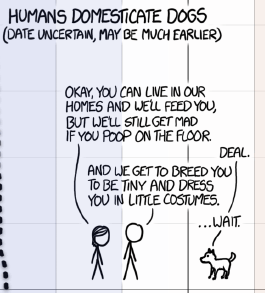 HUMANS DOMESTICATE DOGS
(DATE UNCERTAIN, MAY BE MUCH EARLIER)
OKAY, YOU CAN LIVE IN OUR
HOMES AND WE'LL FEED YOU,
BUT WE'LL STILL GET MAD
IF YOU POOP ON THE FLOOR.
DEAL.
AND WE GET TO BREED YOU
TO BE TINY AND DRESS
YOU IN LITTLE COSTUMES.
...WAIT.